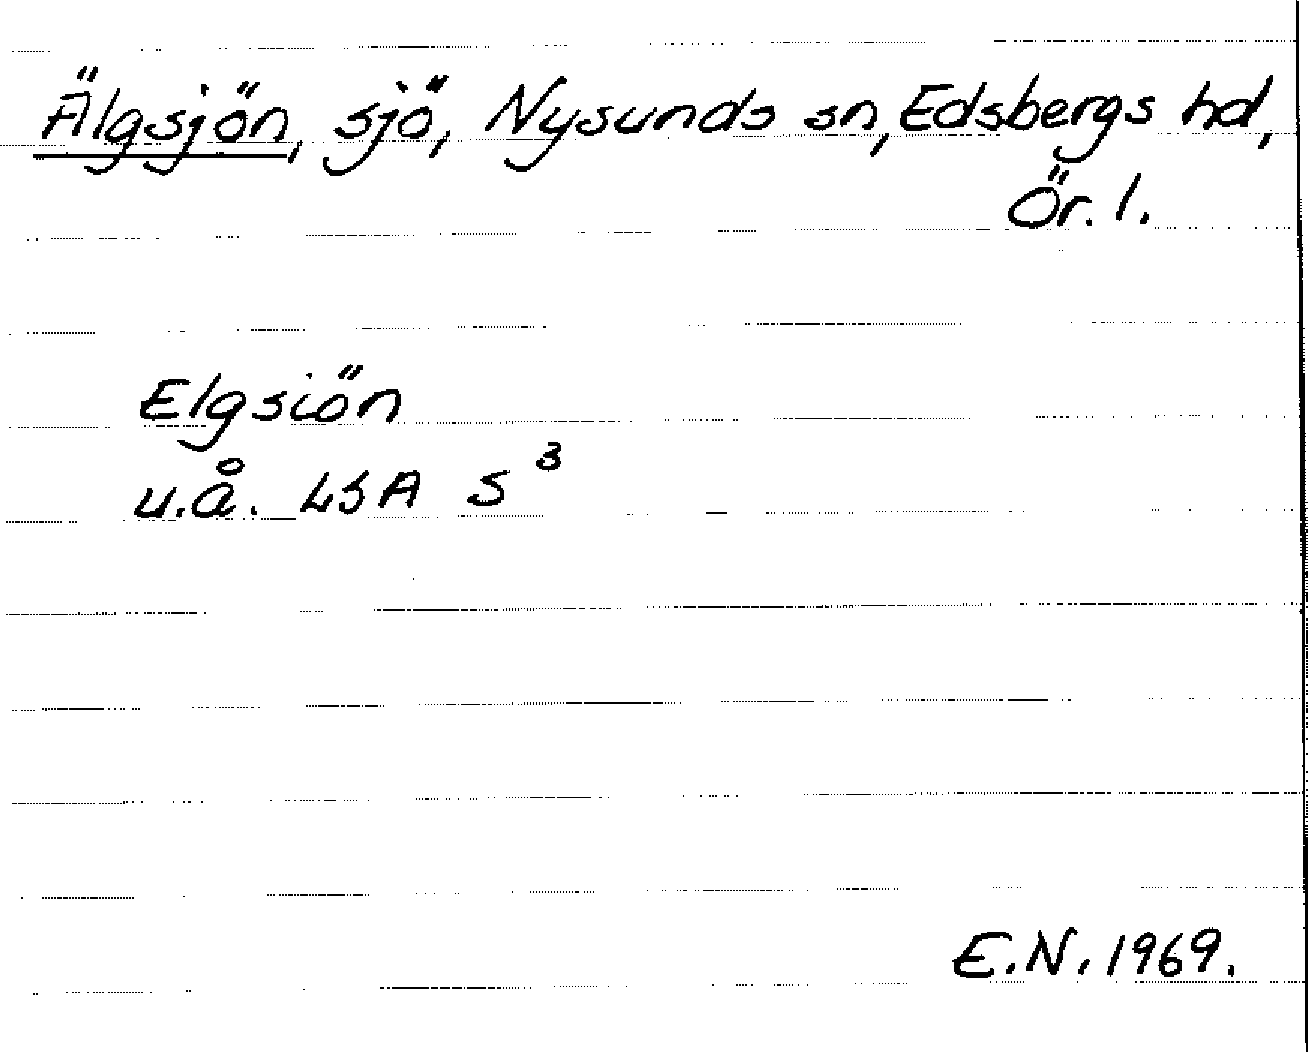 Älgsjön, sjö, Nysunds sn, Edsbergs hd,
Ör. l.
Elgsiön
u.å. LSA S³
E.N. 1969.